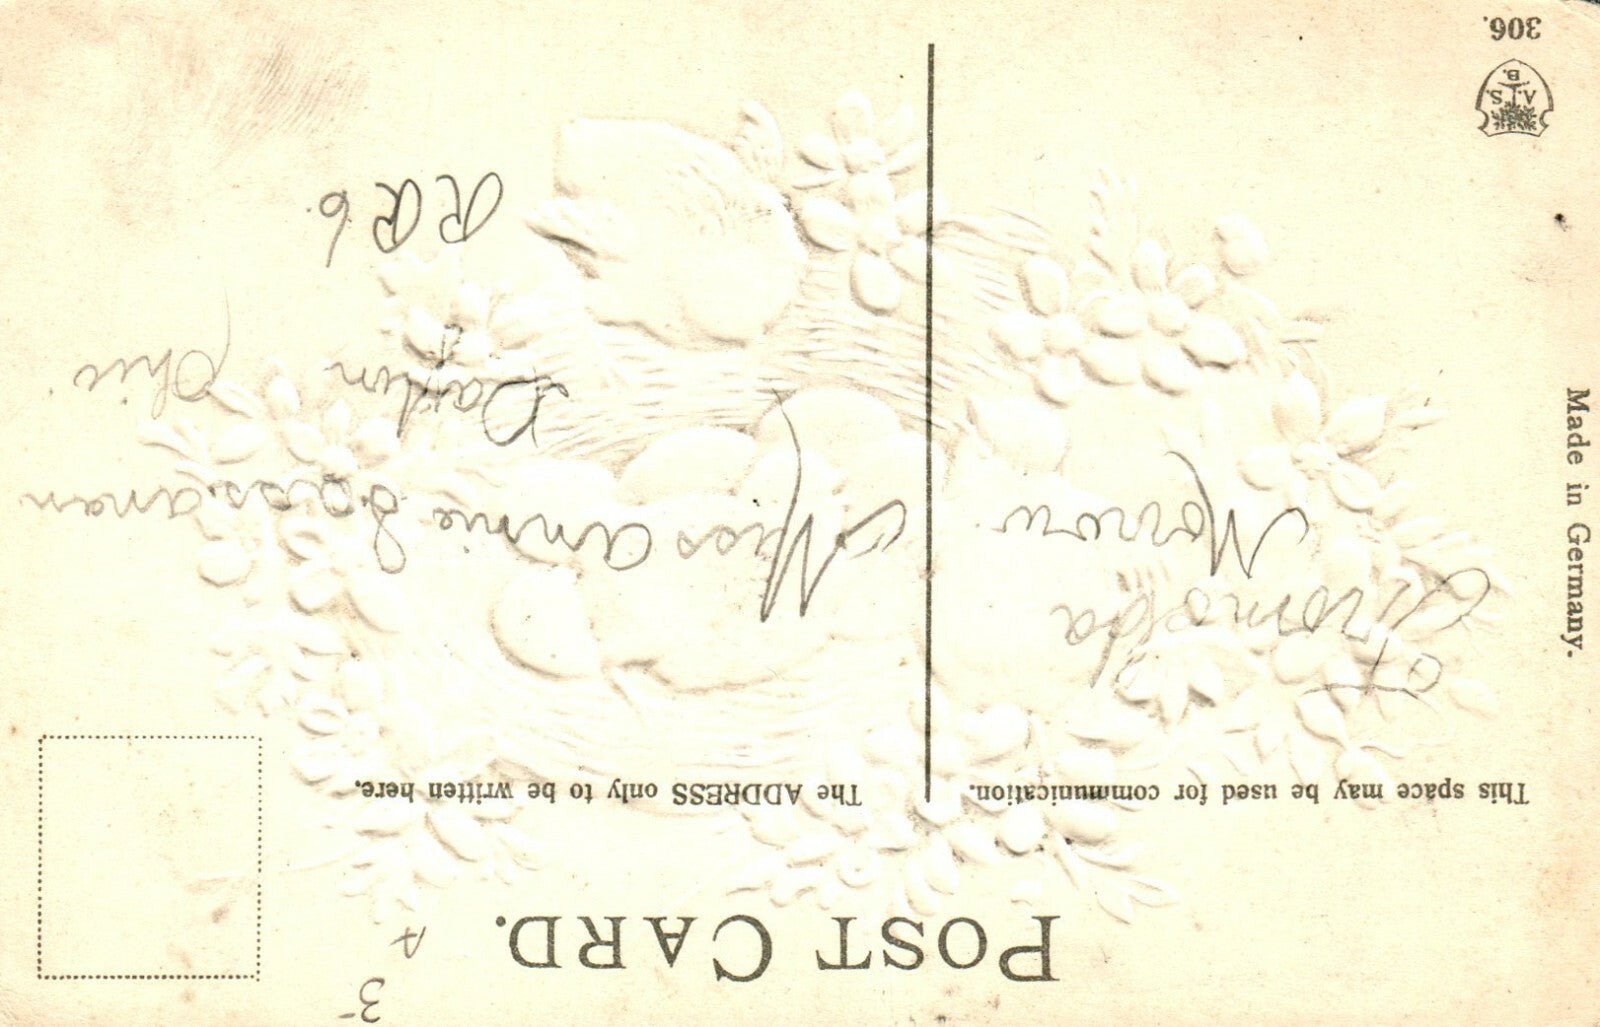 POST CARD.
This space may be used for communication.
The ADDRESS only to be written here.
Morrow
Miss Annie
Dayton Ohio
R R 6.
Made in Germany.
A. S.
B.
306.
3